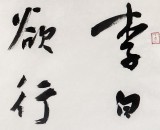 李白
欲行